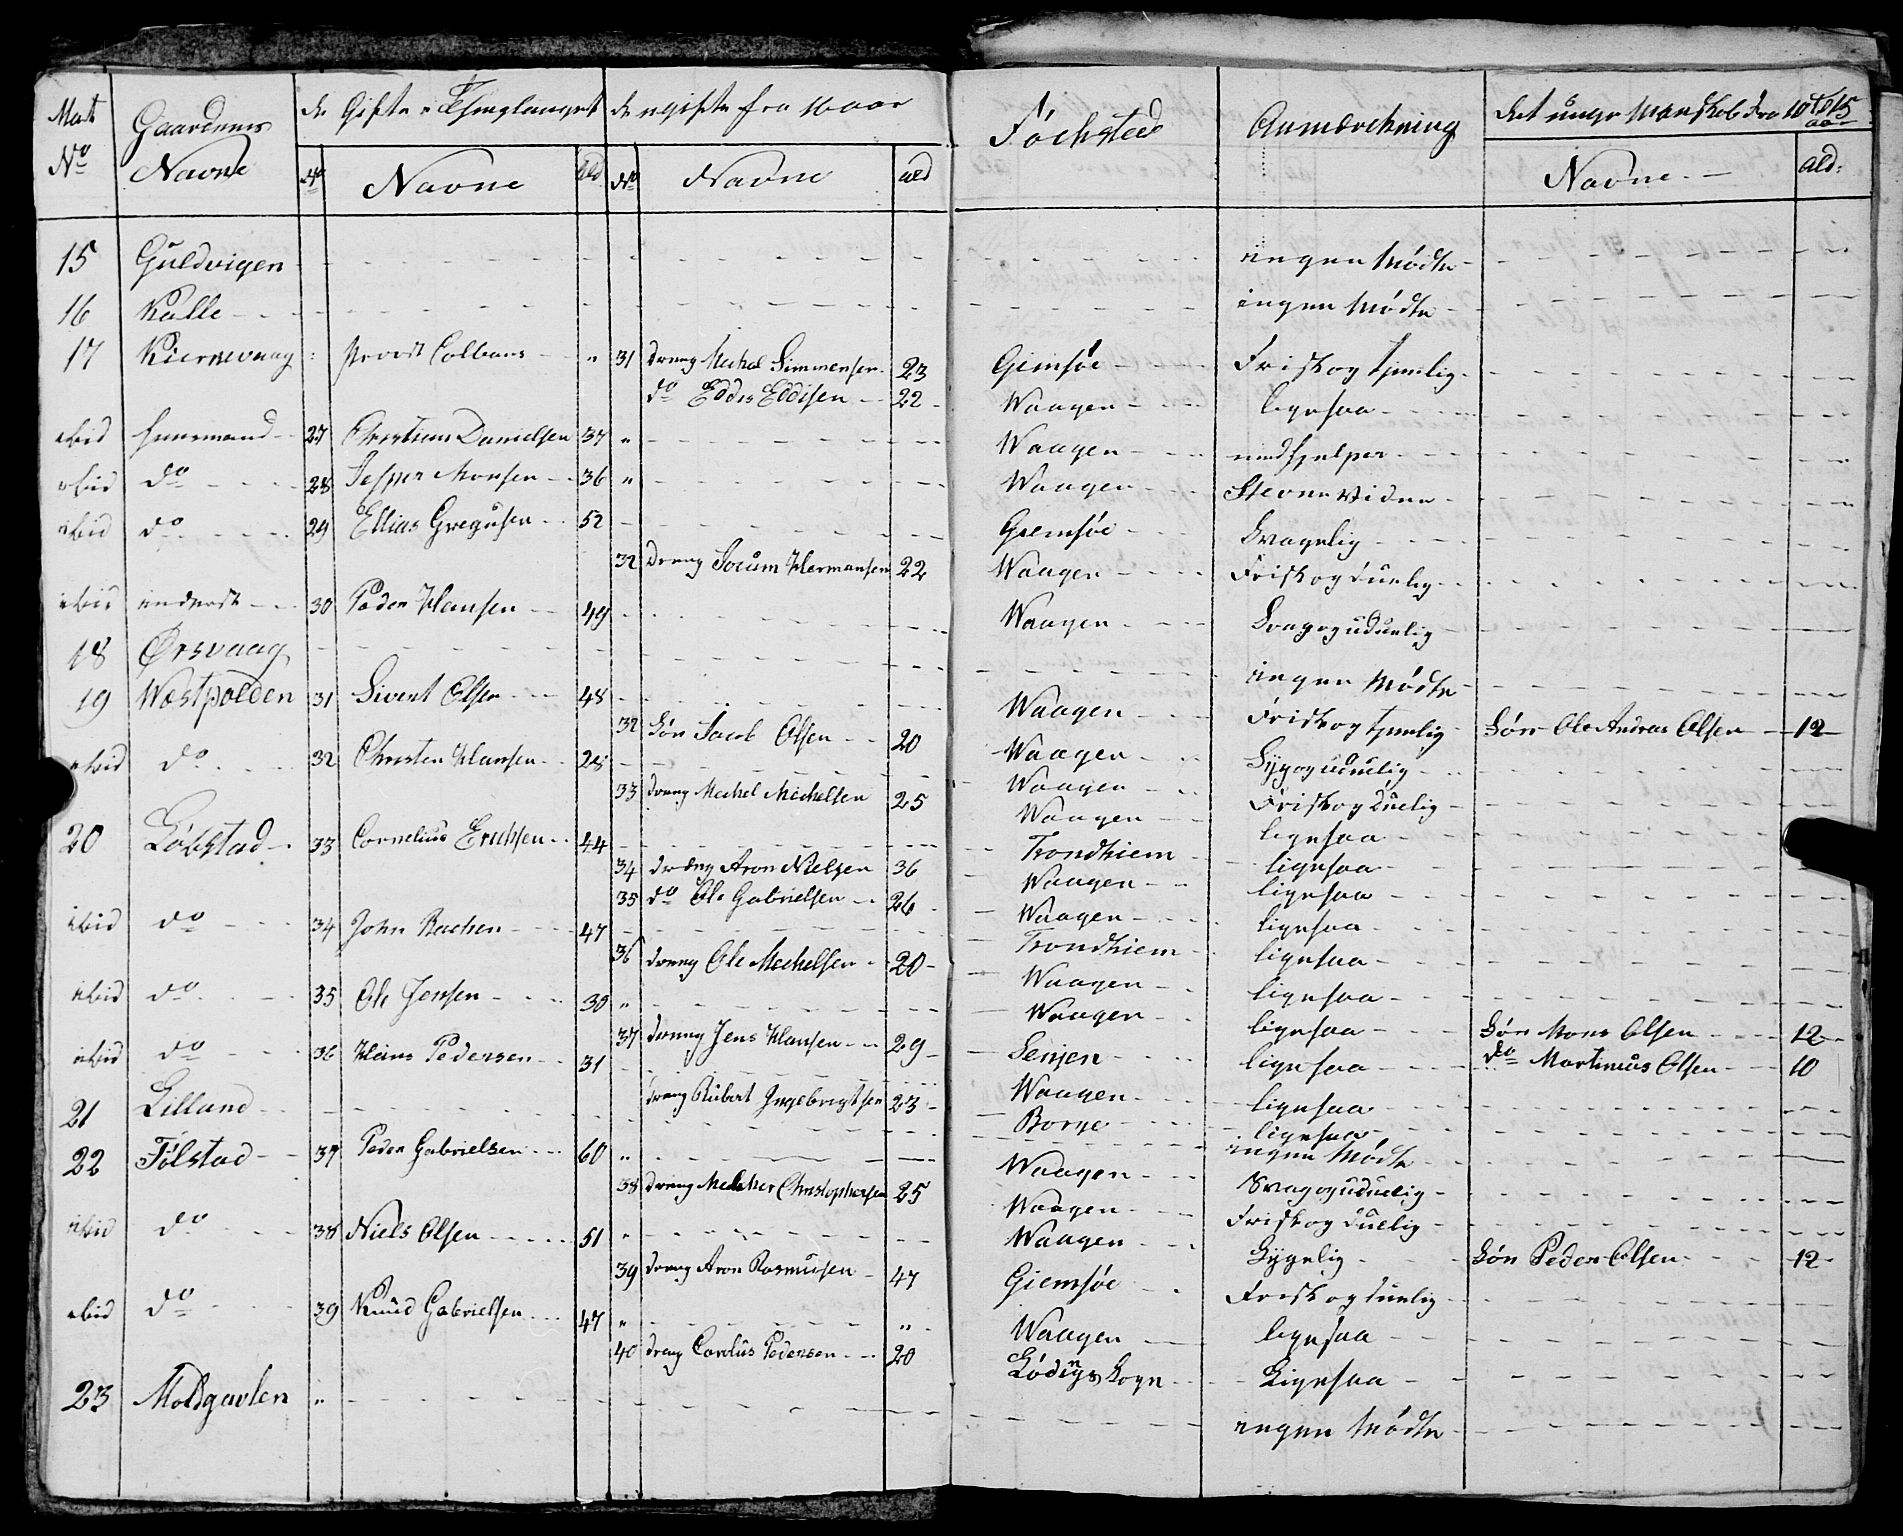 Mat No Gaardenes Navne de Gifte i Thinglauget de ugifte fra 16 aar Fødested Anmærckning det unge Manskab fra 10 til 15 aar
No Navne Ald No Navne ald Navne ald:
15 Guldvigen ingen Mødte
16 Kalle ingen Mødte
17 Kiernevaag Provst Colbans " 31 dreng Mechel Simmensen 23 Giemsøe Frisk og tjenlig
do Eddis Eddisen 22 Waagen ligesaa
ibid huusmand 27 Christian Danielsen 37 " Waagen medhjelper
ibid do 28 Jesper Monsen 36 " Waagen Stevne Vidne
ibid do 29 Ellias Gregusen 52 Giemsøe Svagelig
32 Dreng Joeum Hermansen 22 Waagen Frisk og duelig
ibid inderst 30 Peder Hansen 49 Waagen Svag og uduelig
18 Ørsvaag ingen Mødte
19 Westpolden 31 Sivert Olsen 48 Waagen Frisk og tjenlig Søn Ole Andreas Olsen 12
32 Søn Jacob Olsen 20 Waagen Syg og uduelig
ibid do 32 Christen Hansen 28 Waagen Frisk og duelig
33 dreng Mechel Mechelsen 25 Waagen ligesaa
20 Løbstad 33 Cornelius Erichsen 44 Trondhiem ligesaa
34 dreng Aron Nielsen 36 Waagen ligesaa
35 do Ole Gabrielsen 26 Waagen ligesaa
ibid do 34 John 47 Trondhiem ligesaa
36 dreng Ole Mechelsen 20 Waagen ligesaa
ibid do 35 Ole Jensen 30 " Waagen ligesaa Søn Mons Olsen 12
37 dreng Jens Hansen 29 Senjen ligesaa do Martinus Olsen 10
ibid do 36 Hans Pedersen 31 Waagen ligesaa
dreng Ribert Ingebrigtsen 23 Borge ligesaa
21 Lilland ingen Mødte
22 Følstad 37 Peder Gabrielsen 60 " Waagen Svag og uduelig
38 dreng Melcher Christophersen 25 Waagen Frisk og duelig
ibid do 38 Niels Olsen 51 " Waagen Sygelig Søn Peder Olsen 12
39 dreng Aron Rasmusen 47 Giemsøe Frisk og duelig
ibid do 39 Knud Gabrielsen 47 " " Waagen ligesaa
40 dreng Carolus Pedersen 20 Lødings Sogn Ligesaa
23 Moldgavlen " ingen Mødte